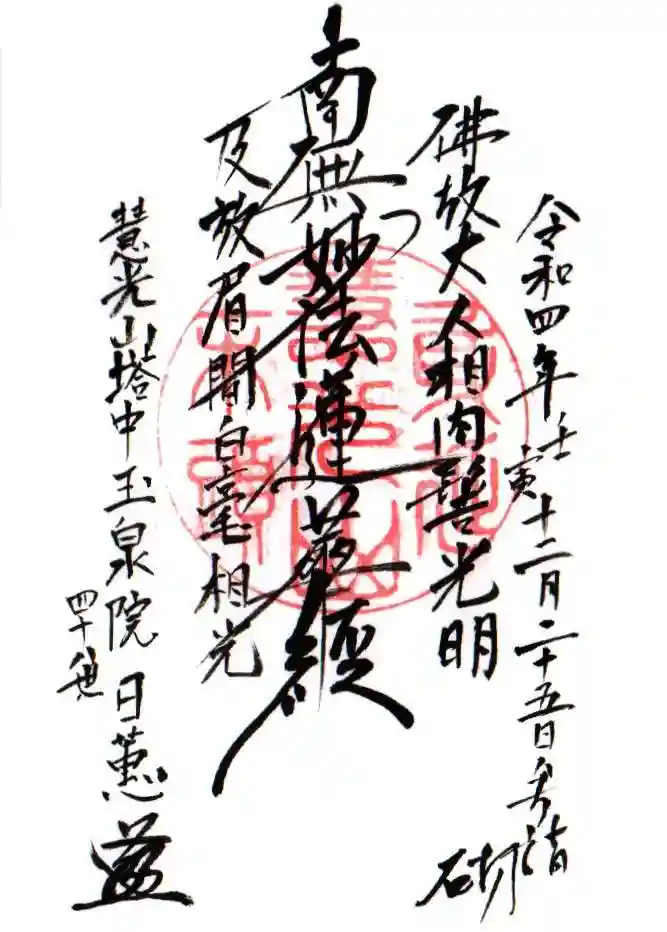 令和四年壬寅十二月二十五日奉請 砌
佛放大人相肉髻光明
南無妙法蓮華經
及放眉間白毫相光
慧光山塔中玉泉院
四十世